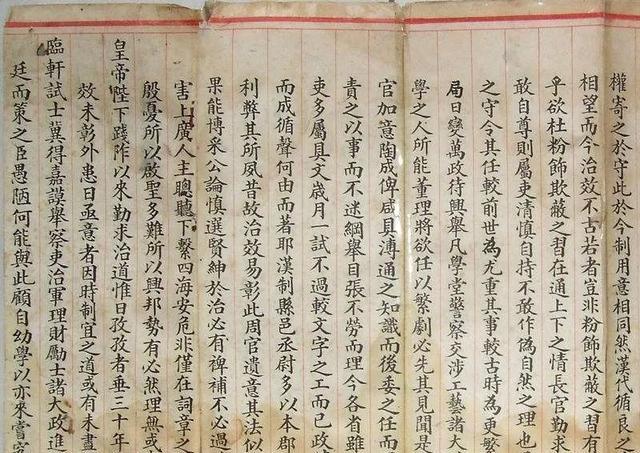 權寄之於守此於今制用意相同然漢代循良之
相望而今治效不古若者豈非粉飾欺蔽之習有
乎欲杜粉飾欺蔽之習在通上下之情長官勤求
敢自尊則屬吏清慎自持不敢作偽自然之理也
之守令其任較前世為尤重其事較古時為更繁
局日變萬政待興舉凡學堂警察交涉工藝諸大
學之人所能董理將欲任以繁劇必先其見聞是
官加意陶成俾咸具溥通之知識而後委之任而
責之以事而不迷綱舉目張不勞而理今各省雖
吏多屬具文歲月一試不過較文字之工而已政
而成循聲何由而著耶漢制縣邑丞尉多以本郡
利弊其所夙昔故治效易彰此周官遺意其法似
果能博采公論慎選賢紳於治必有裨補不必過
害上廣人主聰聽下繫四海安危非僅在詞章之
殷憂所以啟聖多難所以興邦勢有必然理無或
皇帝陛下踐阼以來勤求治道惟日孜孜者垂三十年
效未彰外患日亟意者因時制宜之道或有未盡
臨軒試士冀得嘉謨舉察吏治軍理財勵士諸大政進
廷而策之臣愚陋何能與此顧自幼學以亦來嘗究